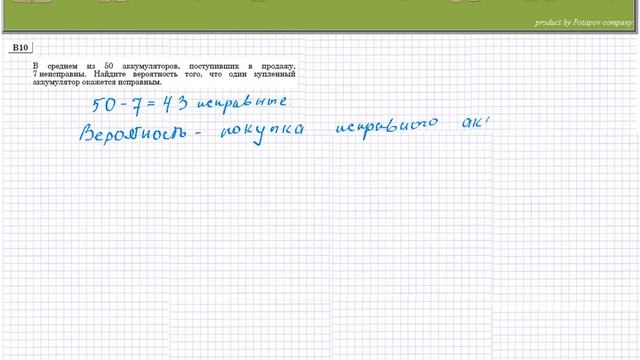 product by Potapov company
B10
В среднем из 50 аккумуляторов, поступивших в продажу,
7 неисправны. Найдите вероятность того, что один купленный
аккумулятор окажется исправным.
50 - 7 = 43 исправные.
Вероятность - покупка исправного ак